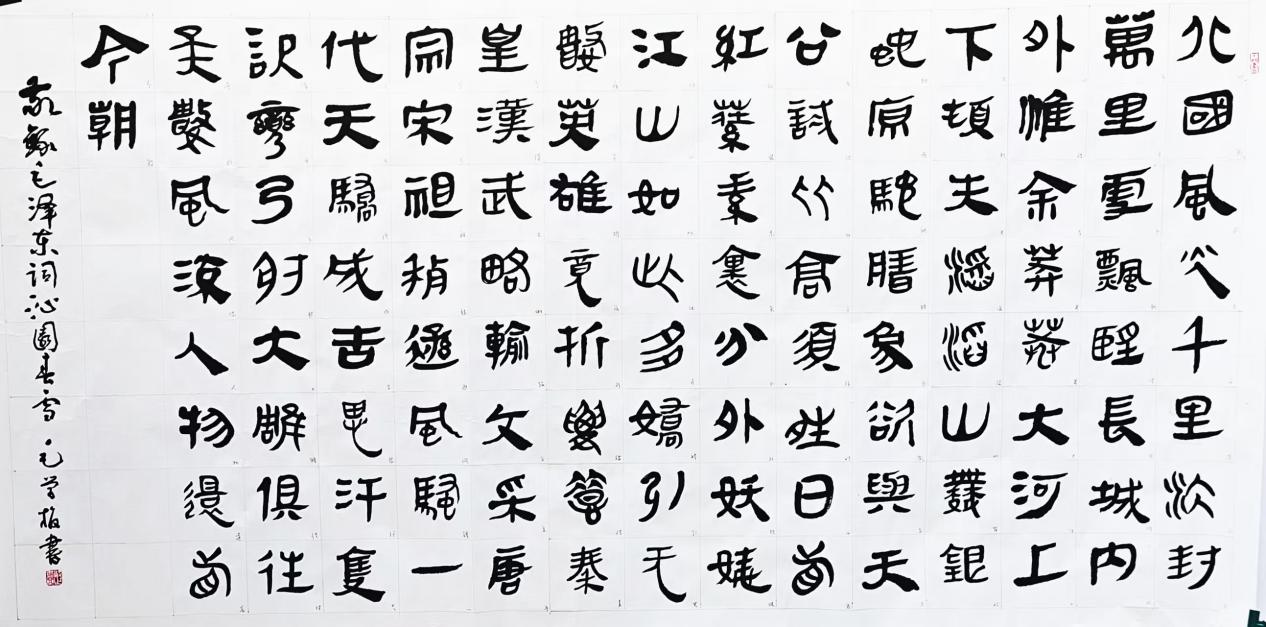 北國風光千里冰封
萬里雪飄望長城内
外惟余莽莽大河上
下頓失滔滔山舞銀
蛇原馳腊象欲與天
公試比高須晴日看
紅裝素裹分外妖嬈
江山如此多嬌引无
數英雄竟折腰惜秦
皇漢武略輸文采唐
宗宋祖稍遜風騷一
代天驕成吉思汗隻
識彎弓射大雕俱往
矣數風流人物還看
今朝
敬錄毛泽东词沁園春雪 毛学書